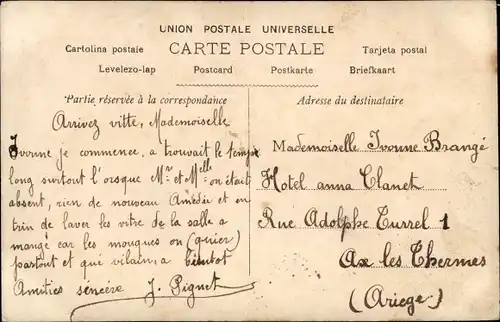 UNION POSTALE UNIVERSELLE
Cartolina postale CARTE POSTALE Tarjeta postal
Levelezo-lap Postcard Postkarte Briefkaart
Partie réservée à la correspondance
Adresse du destinataire
Arrivez vitte, Mademoiselle
Ivonne je commence, a trouvait le temps
long surtout l'orsque Mr et Melle on était
absent, rien de nouveau Amédée et en
trin de laver les vitre de la salle a
mangé car les mouques on (quier)
partout et qué vilain, a bientot
Amities sencère J. Pignet
Mademoiselle Ivonne Brangé
Hotel anna Clanet
Rue Adolphe Turrel 1
Ax les Thermes
(Ariege)